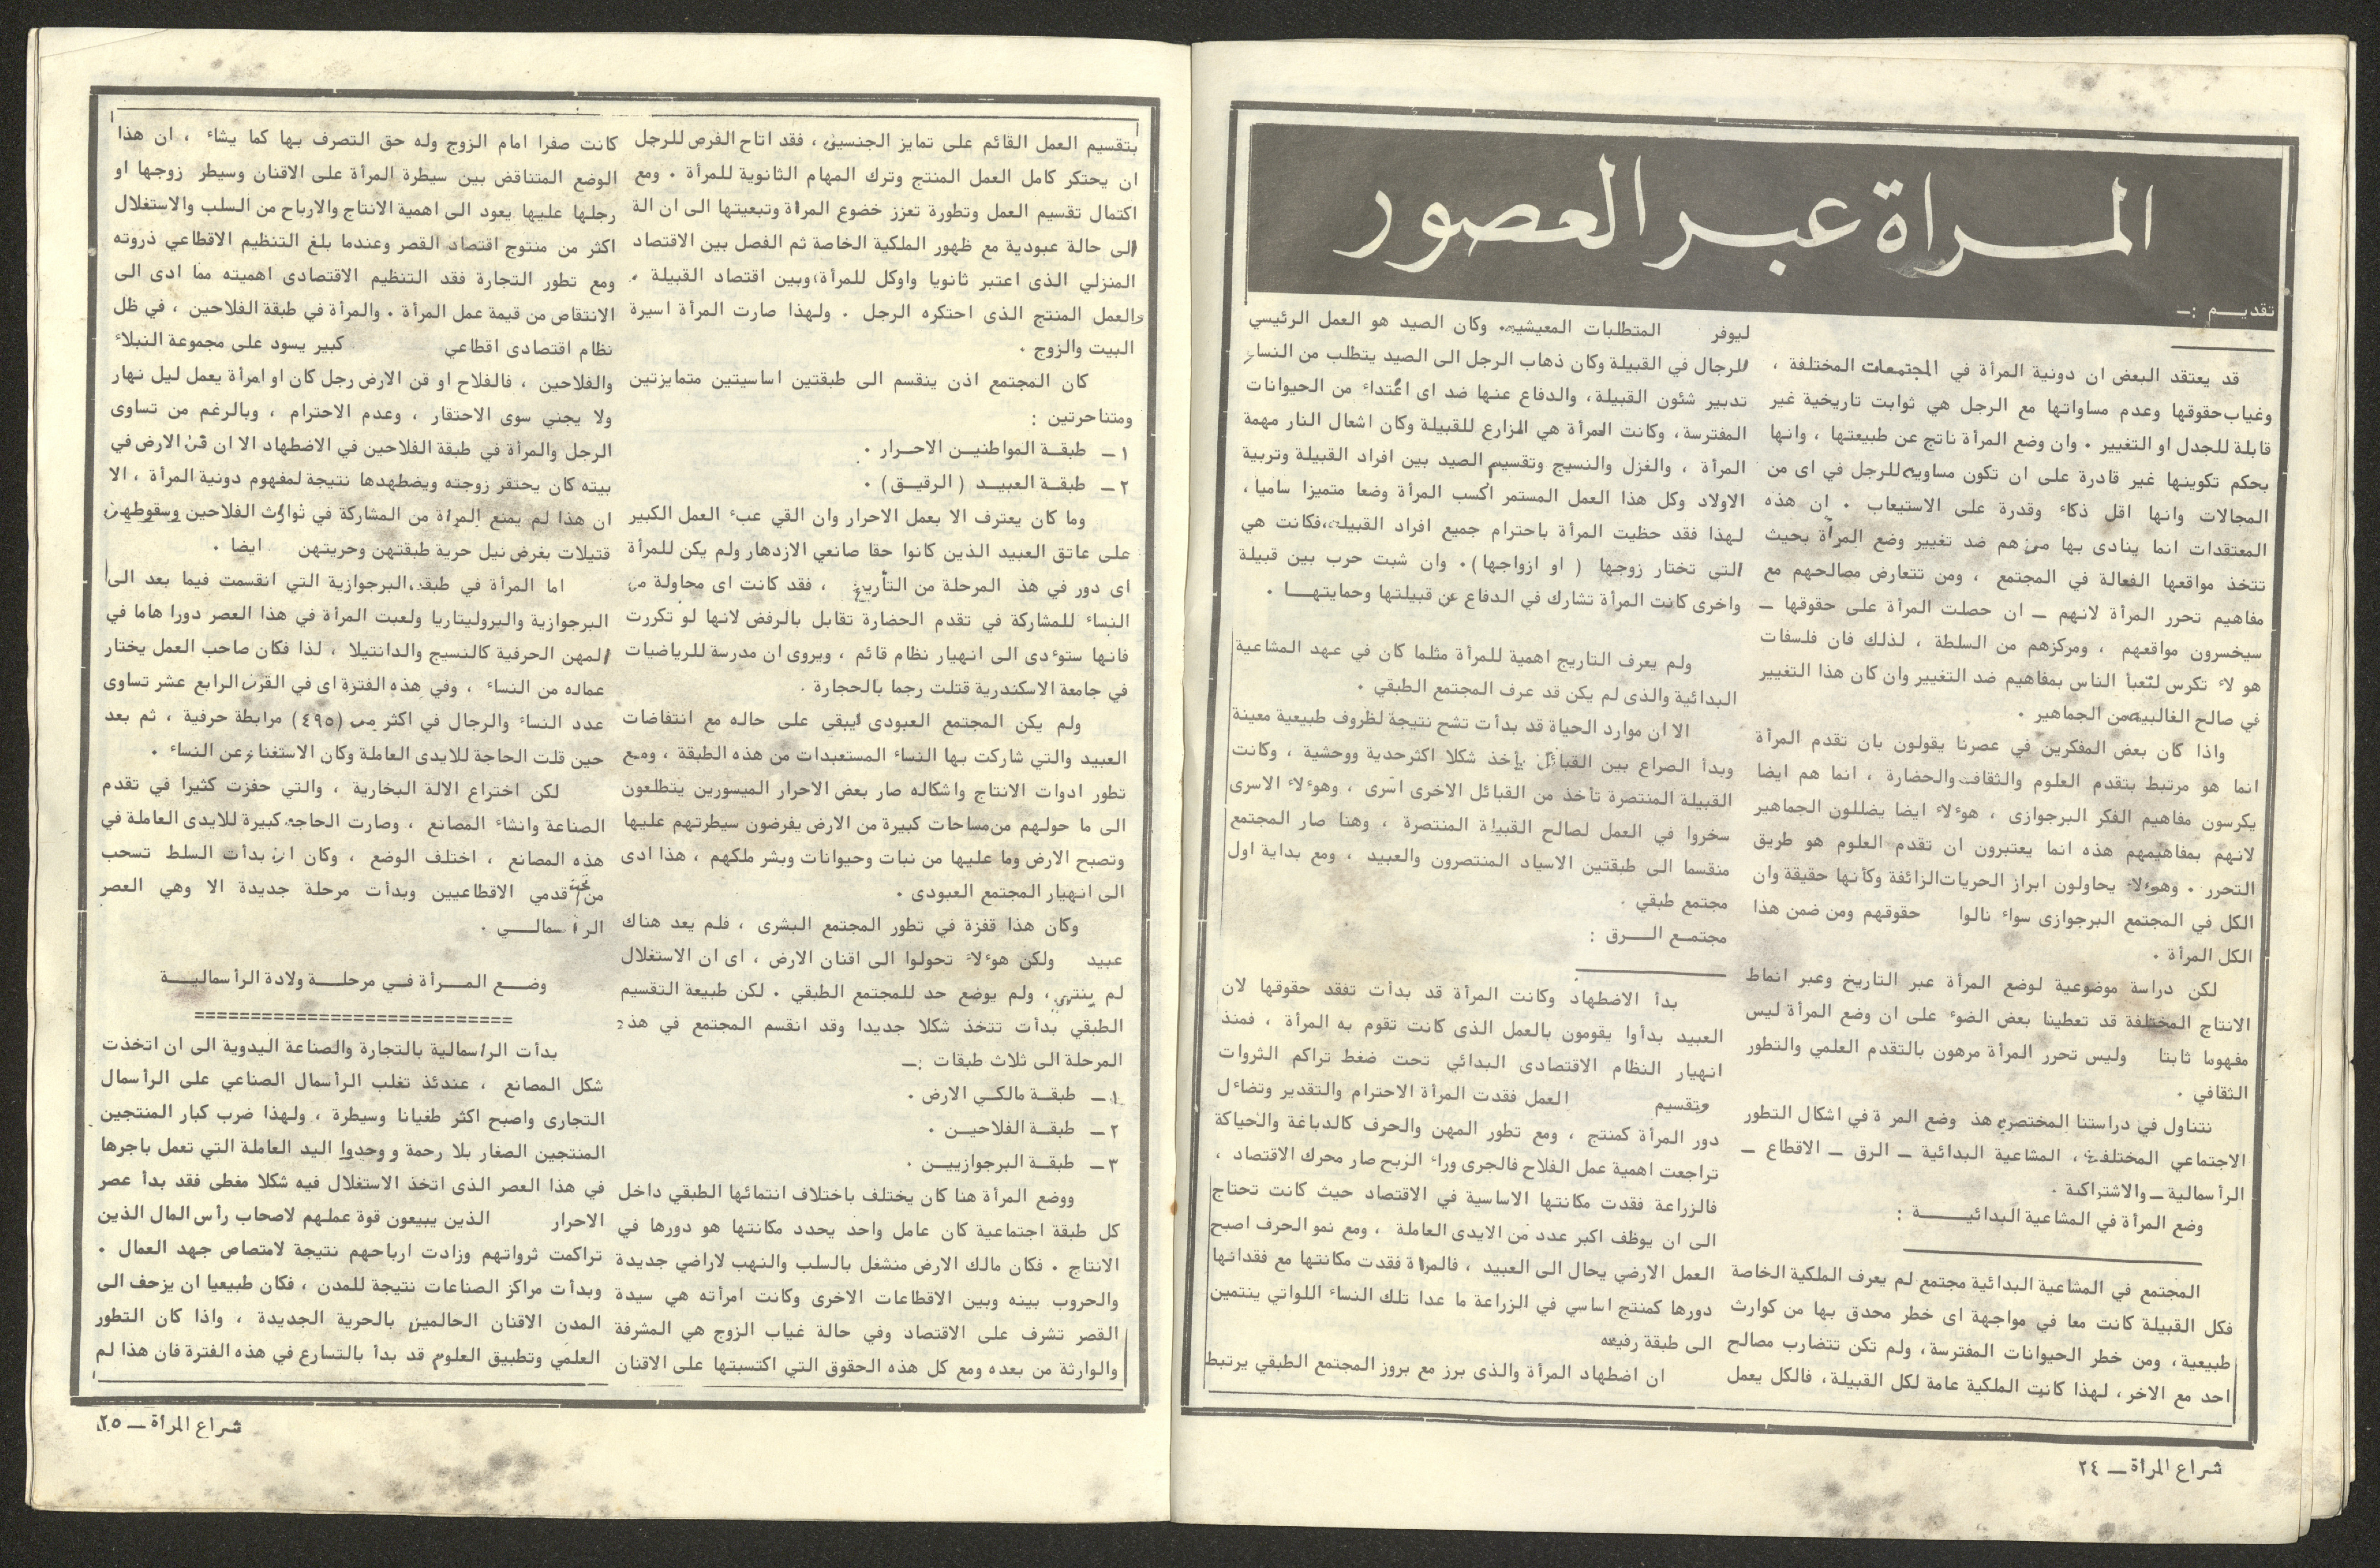 المـــراة عبـر العصور
تقديـــم :ــ
قد يعتقد البعض ان دونية المرأة في المجتمعات المختلفة ،
وغياب حقوقها وعدم مساواتها مع الرجل هي ثوابت تاريخية غير
قابلة للجدل او التغيير ٠ وان وضع المرأة ناتج عن طبيعتها ، وانها
بحكم تكوينها غير قادرة على ان تكون مساويه للرجل في اى من
المجالات وانها اقل ذكاء وقدرة على الاستيعاب ٠ ان هذه
المعتقدات انما ينادى بها من هم ضد تغيير وضع المرأة بحيث
تتخذ مواقعها الفعالة في المجتمع ، ومن تتعارض مصالحهم مع
مفاهيم تحرر المرأة لانهم ــ ان حصلت المرأة على حقوقها ــ
سيخسرون مواقعهم ، ومركزهم من السلطة ، لذلك فان فلسفات
هو لاء تكرس لتعبأ الناس بمفاهيم ضد التغيير وان كان هذا التغيير
في صالح الغالبيه من الجماهير ٠
واذا كان بعض المفكرين في عصرنا يقولون بان تقدم المرأة
انما هو مرتبط بتقدم العلوم والثقافه والحضارة ، انما هم ايضا
يكرسون مفاهيم الفكر البرجوازى ، هوءلاء ايضا يضللون الجماهير
لانهم بمفاهيمهم هذه انما يعتبرون ان تقدم العلوم هو طريق
التحرر ٠ وهوءلاء يحاولون ابراز الحريات الزائفة وكأنها حقيقة وان
الكل في المجتمع البرجوازى سواء نالوا حقوقهم ومن ضمن هذا
الكل المرأة ٠
لكن دراسة موضوعية لوضع المرأة عبر التاريخ وعبر انماط
الانتاج المختلفة قد تعطينا بعض الضوء على ان وضع المرأة ليس
مفهوما ثابتا وليس تحرر المرأة مرهون بالتقدم العلمي والتطور
الثقافي ٠
نتناول في دراستنا المختصره هذ وضع المر ة في اشكال التطور
الاجتماعي المختلفة ، المشاعية البدائية ــ الرق ــ الاقطاع ــ
الرأسمالية ــ والاشتراكية ٠
وضع المرأة في المشاعية البدائيــــــة :
المجتمع في المشاعية البدائية مجتمع لم يعرف الملكية الخاصة
فكل القبيلة كانت معا في مواجهة اى خطر محدق بها من كوارث
طبيعية ، ومن خطر الحيوانات المفترسة ، ولم تكن تتضارب مصالح
احد مع الاخر ، لهذا كانت الملكية عامة لكل القبيلة ، فالكل يعمل
ليوفر المتطلبات المعيشيه ٠ وكان الصيد هو العمل الرئيسي
للرجال في القبيلة وكان ذهاب الرجل الى الصيد يتطلب من النساء
تدبير شئون القبيلة ، والدفاع عنها ضد اى اعتداء من الحيوانات
المفترسة ، وكانت المرأة هي المزارع للقبيلة وكان اشعال النار مهمة
المرأة ، والغزل والنسيج وتقسيم الصيد بين افراد القبيلة وتربية
الاولاد وكل هذا العمل المستمر اكسب المرأة وضعا متميزا ساميا ،
لهذا فقد حظيت المرأة باحترام جميع افراد القبيلة ، فكانت هي
التي تختار زوجها ( او ازواجها ) ٠ وان شبت حرب بين قبيلة
واخرى كانت المرأة تشارك في الدفاع عن قبيلتها وحمايتهـــا ٠
ولم يعرف التاريخ اهمية للمرأة مثلما كان في عهد المشاعية
البدائية والذى لم يكن قد عرف المجتمع الطبقي ٠
الا ان موارد الحياة قد بدأت تشح نتيجة لظروف طبيعية معينة
وبدأ الصراع بين القبائل يأخذ شكلا اكثر حدية ووحشية ، وكانت
القبيلة المنتصرة تأخذ من القبائل الاخرى اسرى ، وهوءلاء الاسرى
سخروا في العمل لصالح القبيلة المنتصرة ، وهنا صار المجتمع
منقسما الى طبقتين الاسياد المنتصرون والعبيد ، ومع بداية اول
مجتمع طبقي ٠
مجتمــع الـــرق :
بدأ الاضطهاد وكانت المرأة قد بدأت تفقد حقوقها لان
العبيد بدأوا يقومون بالعمل الذى كانت تقوم به المرأة ، فمنذ
انهيار النظام الاقتصادى البدائي تحت ضغط تراكم الثروات
وتقسيم العمل فقدت المرأة الاحترام والتقدير وتضاءل
دور المرأة كمنتج ، ومع تطور المهن والحرف كالدباغة والحياكة
تراجعت اهمية عمل الفلاح فالجرى وراء الربح صار محرك الاقتصاد ،
فالزراعة فقدت مكانتها الاساسية في الاقتصاد حيث كانت تحتاج
الى ان يوظف اكبر عدد من الايدى العاملة ، ومع نمو الحرف اصبح
العمل الارضي يحال الى العبيد ، فالمراة فقدت مكانتها مع فقدانها
دورها كمنتج اساسي في الزراعة ما عدا تلك النساء اللواتي ينتمين
الى طبقة رفيعه
ان اضطهاد المرأة والذى برز مع بروز المجتمع الطبقي يرتبط
شراع المرأة ــ ٢٤
بتقسيم العمل القائم على تمايز الجنسين ، فقد اتاح الفرص للرجل
ان يحتكر كامل العمل المنتج وترك المهام الثانوية للمرأة ٠ ومع
اكتمال تقسيم العمل وتطورة تعزز خضوع المراة وتبعيتها الى ان الة
الى حالة عبودية مع ظهور الملكية الخاصة ثم الفصل بين الاقتصاد
المنزلي الذى اعتبر ثانويا واوكل للمرأة ، وبين اقتصاد القبيلة ٠
والعمل المنتج الذى احتكره الرجل ٠ ولهذا صارت المرأة اسيرة
البيت والزوج ٠
كان المجتمع اذن ينقسم الى طبقتين اساسيتين متمايزتين
ومتناحرتين :
١ــ طبقــة المواطنيــن الاحــرار ٠
٢ــ طبقــة العبيــد ( الرقيــق ) ٠
وما كان يعترف الا بعمل الاحرار وان القي عبء العمل الكبير
على عاتق العبيد الذين كانوا حقا صانعي الازدهار ولم يكن للمرأة
اى دور في هذ المرحلة من التأريخ ، فقد كانت اى محاولة من
النساء للمشاركة في تقدم الحضارة تقابل بالرفض لانها لو تكررت
فانها ستوءدى الى انهيار نظام قائم ، ويروى ان مدرسة للرياضيات
في جامعة الاسكندرية قتلت رجما بالحجارة ٠
ولم يكن المجتمع العبودى ليبقى على حاله مع انتفاضات
العبيد والتي شاركت بها النساء المستعبدات من هذه الطبقة ، ومع
تطور ادوات الانتاج واشكاله صار بعض الاحرار الميسورين يتطلعون
الى ما حولهم من مساحات كبيرة من الارض يفرضون سيطرتهم عليها
وتصبح الارض وما عليها من نبات وحيوانات وبشر ملكهم ، هذا ادى
الى انهيار المجتمع العبودى ٠
وكان هذا قفزة في تطور المجتمع البشرى ، فلم يعد هناك
عبيد ولكن هوءلاء تحولوا الى اقنان الارض ، اى ان الاستغلال
لم ينتهي ، ولم يوضع حد للمجتمع الطبقي ٠ لكن طبيعة التقسيم
الطبقي بدأت تتخذ شكلا جديدا وقد انقسم المجتمع في هذه
المرحلة الى ثلاث طبقات :ــ
١ــ طبقــة مالكــي الارض ٠
٢ــ طبقــة الفلاحيــن ٠
٣ــ طبقــة البرجوازييــن ٠
ووضع المرأة هنا كان يختلف باختلاف انتمائها الطبقي داخل
كل طبقة اجتماعية كان عامل واحد يحدد مكانتها هو دورها في
الانتاج ٠ فكان مالك الارض منشغل بالسلب والنهب لاراضي جديدة
والحروب بينه وبين الاقطاعات الاخرى وكانت امرأته هي سيدة
القصر تشرف على الاقتصاد وفي حالة غياب الزوج هي المشرفة
والوارثة من بعده ومع كل هذه الحقوق التي اكتسبتها على الاقنان
كانت صفرا امام الزوج وله حق التصرف بها كما يشاء ، ان هذا
الوضع المتناقض بين سيطرة المرأة على الاقنان وسيطر زوجها او
رجلها عليها يعود الى اهمية الانتاج والارباح من السلب والاستغلال
اكثر من منتوج اقتصاد القصر وعندما بلغ التنظيم الاقطاعي ذروته
ومع تطور التجارة فقد التنظيم الاقتصادى اهميته مما ادى الى
الانتقاص من قيمة عمل المرأة ٠ والمرأة في طبقة الفلاحين ، في ظل
نظام اقتصادى اقطاعي كبير يسود على مجموعة النبلاء
والفلاحين ، فالفلاح او قن الارض رجل كان او امرأة يعمل ليل نهار
ولا يجني سوى الاحتقار ، وعدم الاحترام ، وبالرغم من تساوى
الرجل والمرأة في طبقة الفلاحين في الاضطهاد الا ان قن الارض في
بيته كان يحتقر زوجته ويضطهدها نتيجة لمفهوم دونية المرأة ، الا
ان هذا لم يمنع المرأة من المشاركة في ثوارث الفلاحين وسقوطهن
قتيلات بغرض نيل حرية طبقتهن وحريتهن ايضا ٠
اما المرأة في طبقة البرجوازية التي انقسمت فيما بعد الى
البرجوازية والبروليتاريا ولعبت المرأة في هذا العصر دورا هاما في
المهن الحرفية كالنسيج والدانتيلا ، لذا فكان صاحب العمل يختار
عماله من النساء ، وفي هذه الفترة اى في القرن الرابع عشر تساوى
عدد النساء والرجال في اكثر من (٤٩٥) مرابطة حرفية ، ثم بعد
حين قلت الحاجة للايدى العاملة وكان الاستغناء عن النساء ٠
لكن اختراع الالة البخارية ، والتي حفزت كثيرا في تقدم
الصناعة وانشاء المصانع ، وصارت الحاجه كبيرة للايدى العاملة في
هذه المصانع ، اختلف الوضع ، وكان ان بدأت السلط تسحب
من تحت قدمي الاقطاعيين وبدأت مرحلة جديدة الا وهي العصر
الرأ سمالـــي ٠
وضـــع المـــرأة فــي مرحلـــة ولادة الرأسماليـــة
============================
بدأت الراسمالية بالتجارة والصناعة اليدوية الى ان اتخذت
شكل المصانع ، عندئذ تغلب الرأسمال الصناعي على الرأسمال
التجارى واصبح اكثر طغيانا وسيطرة ، ولهذا ضرب كبار المنتجين
المنتجين الصغار بلا رحمة و وحدوا اليد العاملة التي تعمل باجرها
في هذا العصر الذى اتخذ الاستغلال فيه شكلا مغطى فقد بدأ عصر
الاحرار الذين يبيعون قوة عملهم لاصحاب رأس المال الذين
تراكمت ثرواتهم وزادت ارباحهم نتيجة لامتصاص جهد العمال ٠
وبدأت مراكز الصناعات نتيجة للمدن ، فكان طبيعيا ان يزحف الى
المدن الاقنان الحالمين بالحرية الجديدة ، واذا كان التطور
العلمي وتطبيق العلوم قد بدأ بالتسارع في هذه الفترة فان هذا لم
شراع المرأة ــ ٢٥